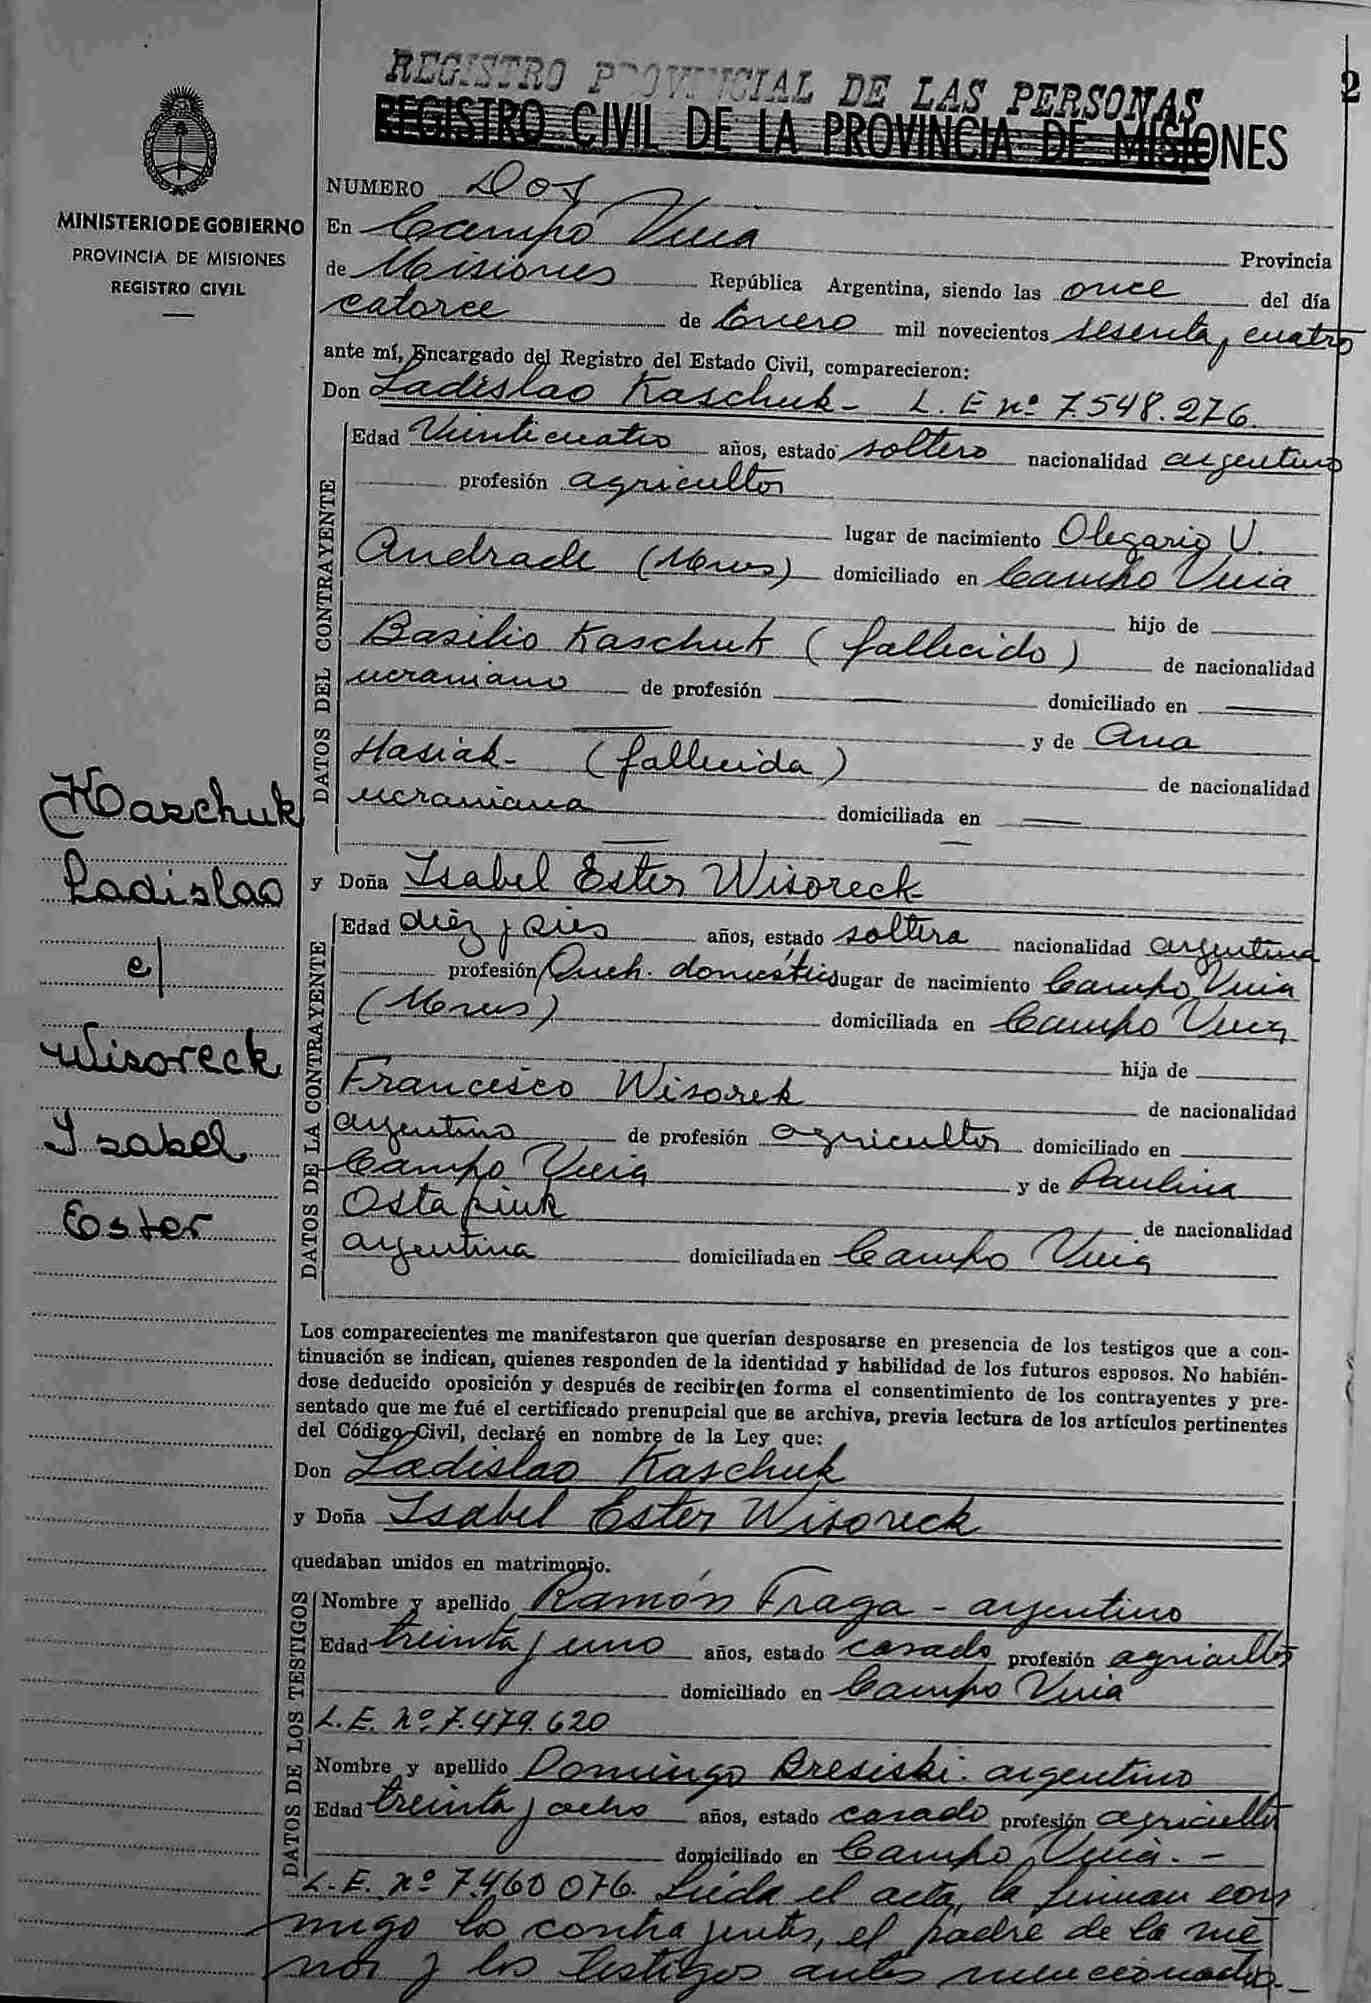 2
REGISTRO PROVINCIAL DE LAS PERSONAS
REGISTRO CIVIL DE LA PROVINCIA DE MISIONES
MINISTERIO DE GOBIERNO
PROVINCIA DE MISIONES
REGISTRO CIVIL
NUMERO Dos
En Campo Viera Provincia
de Misiones República Argentina, siendo las once del día
catorce de Enero mil novecientos sesenta y cuatro
ante mí, Encargado del Registro del Estado Civil, comparecieron:
Don Ladislao Kaschuk - L. E nº 7.548.276.
DATOS DEL CONTRAYENTE
Edad Veinticuatro años, estado soltero nacionalidad argentino
profesión agricultor
lugar de nacimiento Olegario V.
Andrade (Mnes) domiciliado en Campo Viera
hijo de
Basilio Kaschuk (fallecido) de nacionalidad
ucraniano de profesión — domiciliado en —
y de Ana
Hasiak - (fallecida) de nacionalidad
ucraniana domiciliada en —
y Doña Isabel Ester Wisoreck
DATOS DE LA CONTRAYENTE
Edad diez y seis años, estado soltera nacionalidad argentina
profesión Queh. domésticos lugar de nacimiento Campo Viera
(Mnes) domiciliada en Campo Viera
hija de
Francisco Wisorek de nacionalidad
argentino de profesión agricultor domiciliado en
Campo Viera y de Paulina
Ostapiuk de nacionalidad
argentina domiciliada en Campo Viera
Kaschuk
Ladislao
c/
Wisoreck
Isabel
Ester
Los comparecientes me manifestaron que querían desposarse en presencia de los testigos que a con-
tinuación se indican, quienes responden de la identidad y habilidad de los futuros esposos. No habién-
dose deducido oposición y después de recibir en forma el consentimiento de los contrayentes y pre-
sentado que me fué el certificado prenupcial que se archiva, previa lectura de los artículos pertinentes
del Código Civil, declaré en nombre de la Ley que:
Don Ladislao Kaschuk
y Doña Isabel Ester Wisoreck
quedaban unidos en matrimonio.
DATOS DE LOS TESTIGOS
Nombre y apellido Ramón Fraga - argentino
Edad treinta y uno años, estado casado profesión agricultor
domiciliado en Campo Viera
L. E. nº 7.479.620
Nombre y apellido Domingo Bresiski. argentino
Edad treinta y ocho años, estado casado profesión agricultor
domiciliado en Campo Viera. -
L. E. nº 7.460.076. Leida el acta, la firman con
migo los contrayentes, el padre de la me
nor y los testigos antes mencionados. -